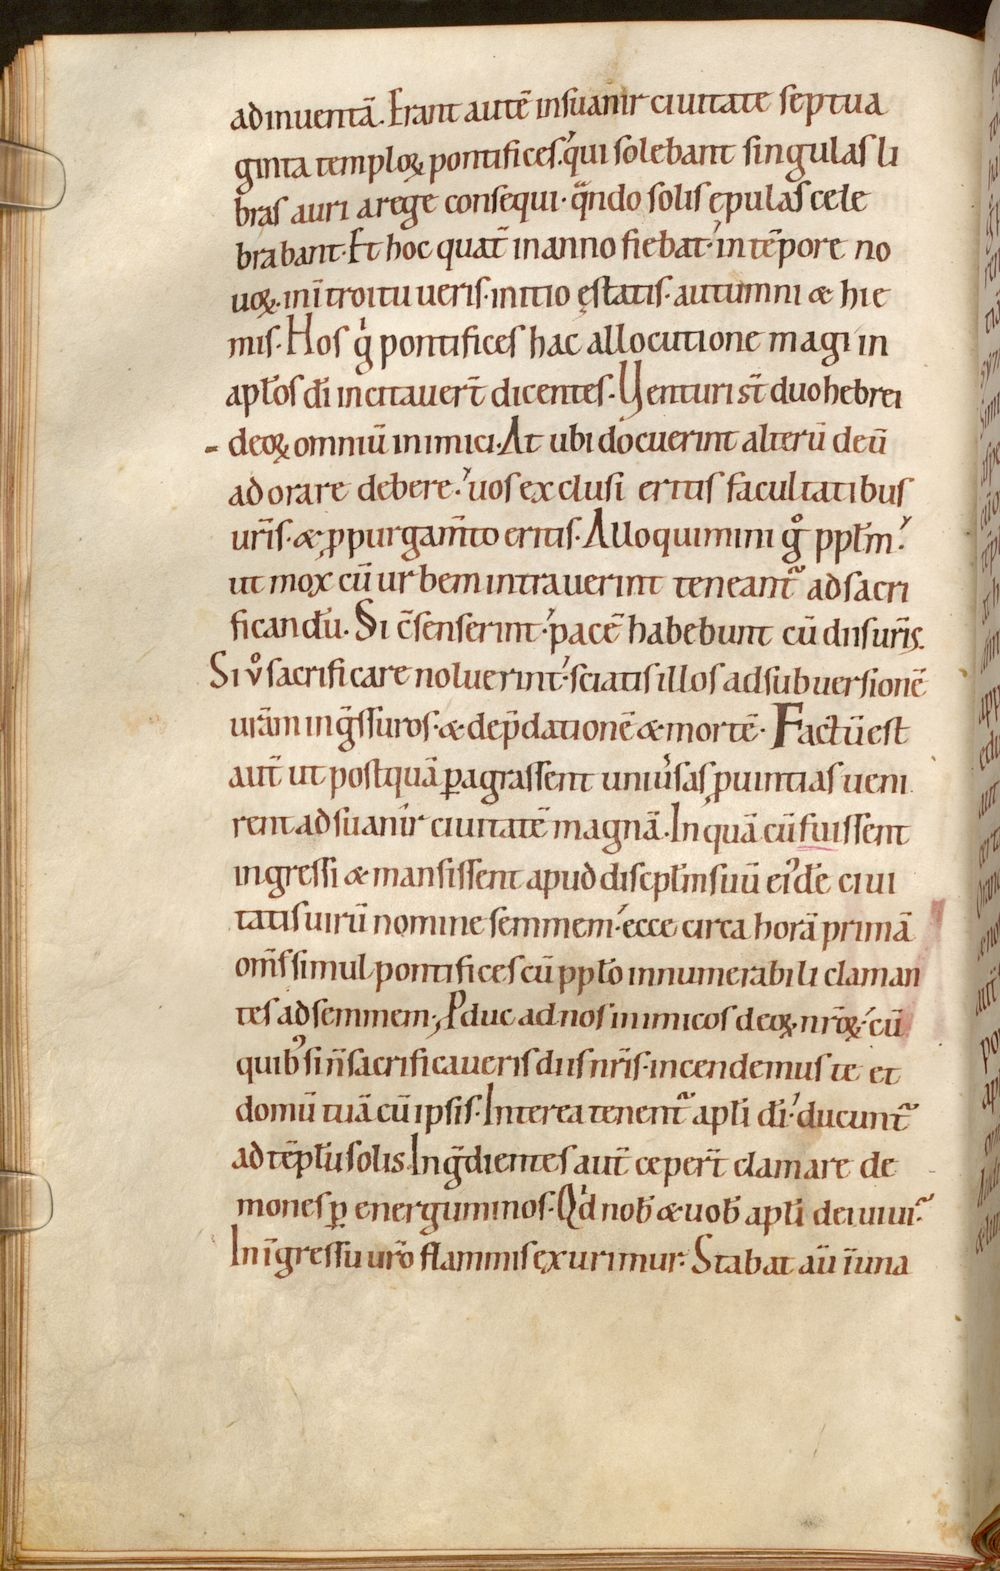 adinuentā. Erant autē insuanir ciuitate septua
ginta temploꝝ pontifices. qui solebant singulas li
bras auri arege consequi· qͣndo solis ępulas cele
brabant· Et hoc quat̄ inanno fiebat· in tēpore no
uoꝝ· inītroitu ueris· initio ęstatis· autumni & hie
mis· Hos gͥ pontifices hac allocutione magi in
apl̄os dī incitauer̄t dicentes. Venturi st̄ duo hebrei
- deoꝝ omniū inimici· At ubi docuerint alterū deū
adorare debere· uos exclusi eritis facultatibus
ur̄is· & ꝓ purgam̄to eritis· Alloquimini gͦ ppl̄m·
ut mox cū urbem intrauerint teneant᷑ ad sacri
ficandū. Si c̄senserint· pacē habebunt cū diis ur̄is.
Si vͦ sacrificare noluerint· sciatis illos ad subuersionē
urām ingͣssuros· & dep̄dationē & mortē· Factū est
aut̄ ut postquā ꝑagrassent uniu͛sas ꝓuintias ueni
rent ad suanir ciuitatē magnā. In quā cū fuissent
ingressi & mansissent apud discpl̄m suū ei᷒dē ciui
tatis uirū nomine semmem· ecce circa horā primā
om̄s simul pontifices cū ppl̄o innumerabili claman
tes ad semmem· Ꝓduc ad nos inimicos deoꝝ nr̄oꝝ· cū
quib᷒ si n̄ sacrificaueris diis nr̄is· incendemus te et
domū tuā cū ipsis· Interea tenent᷑ apl̄i dī· ducunt᷑
ad tēplū solis. Ingͣdientes aut̄ ceper̄t clamare de
mones ꝑ energuminos· Qͥd nob̄ & uob̄ apl̄i dei uiui·
In īgressu ur̄o flammis exurimur· Stabat aū ī una